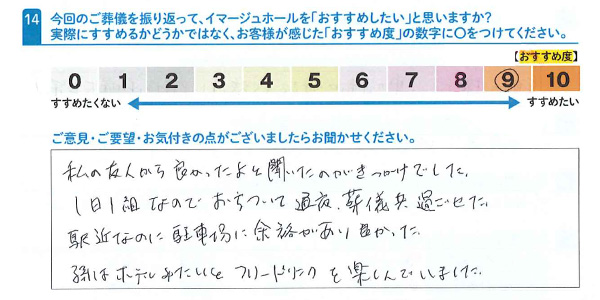 14 今回のご葬儀を振り返って、イマージュホールを「おすすめしたい」と思いますか?
実際にすすめるかどうかではなく、お客様が感じた「おすすめ度」の数字に〇をつけてください。
【おすすめ度】
0 1 2 3 4 5 6 7 8 9 10
すすめたくない すすめたい
ご意見・ご要望・お気付きの点がございましたらお聞かせください。
私の友人から良かったよと聞いたのがきっかけでした。
1日1組なのでおちついて通夜、葬儀共過ごせた。
駅近なのに駐車場に余裕があり良かった。
孫はホテルみたいとフリードリンクを楽しんでいました。